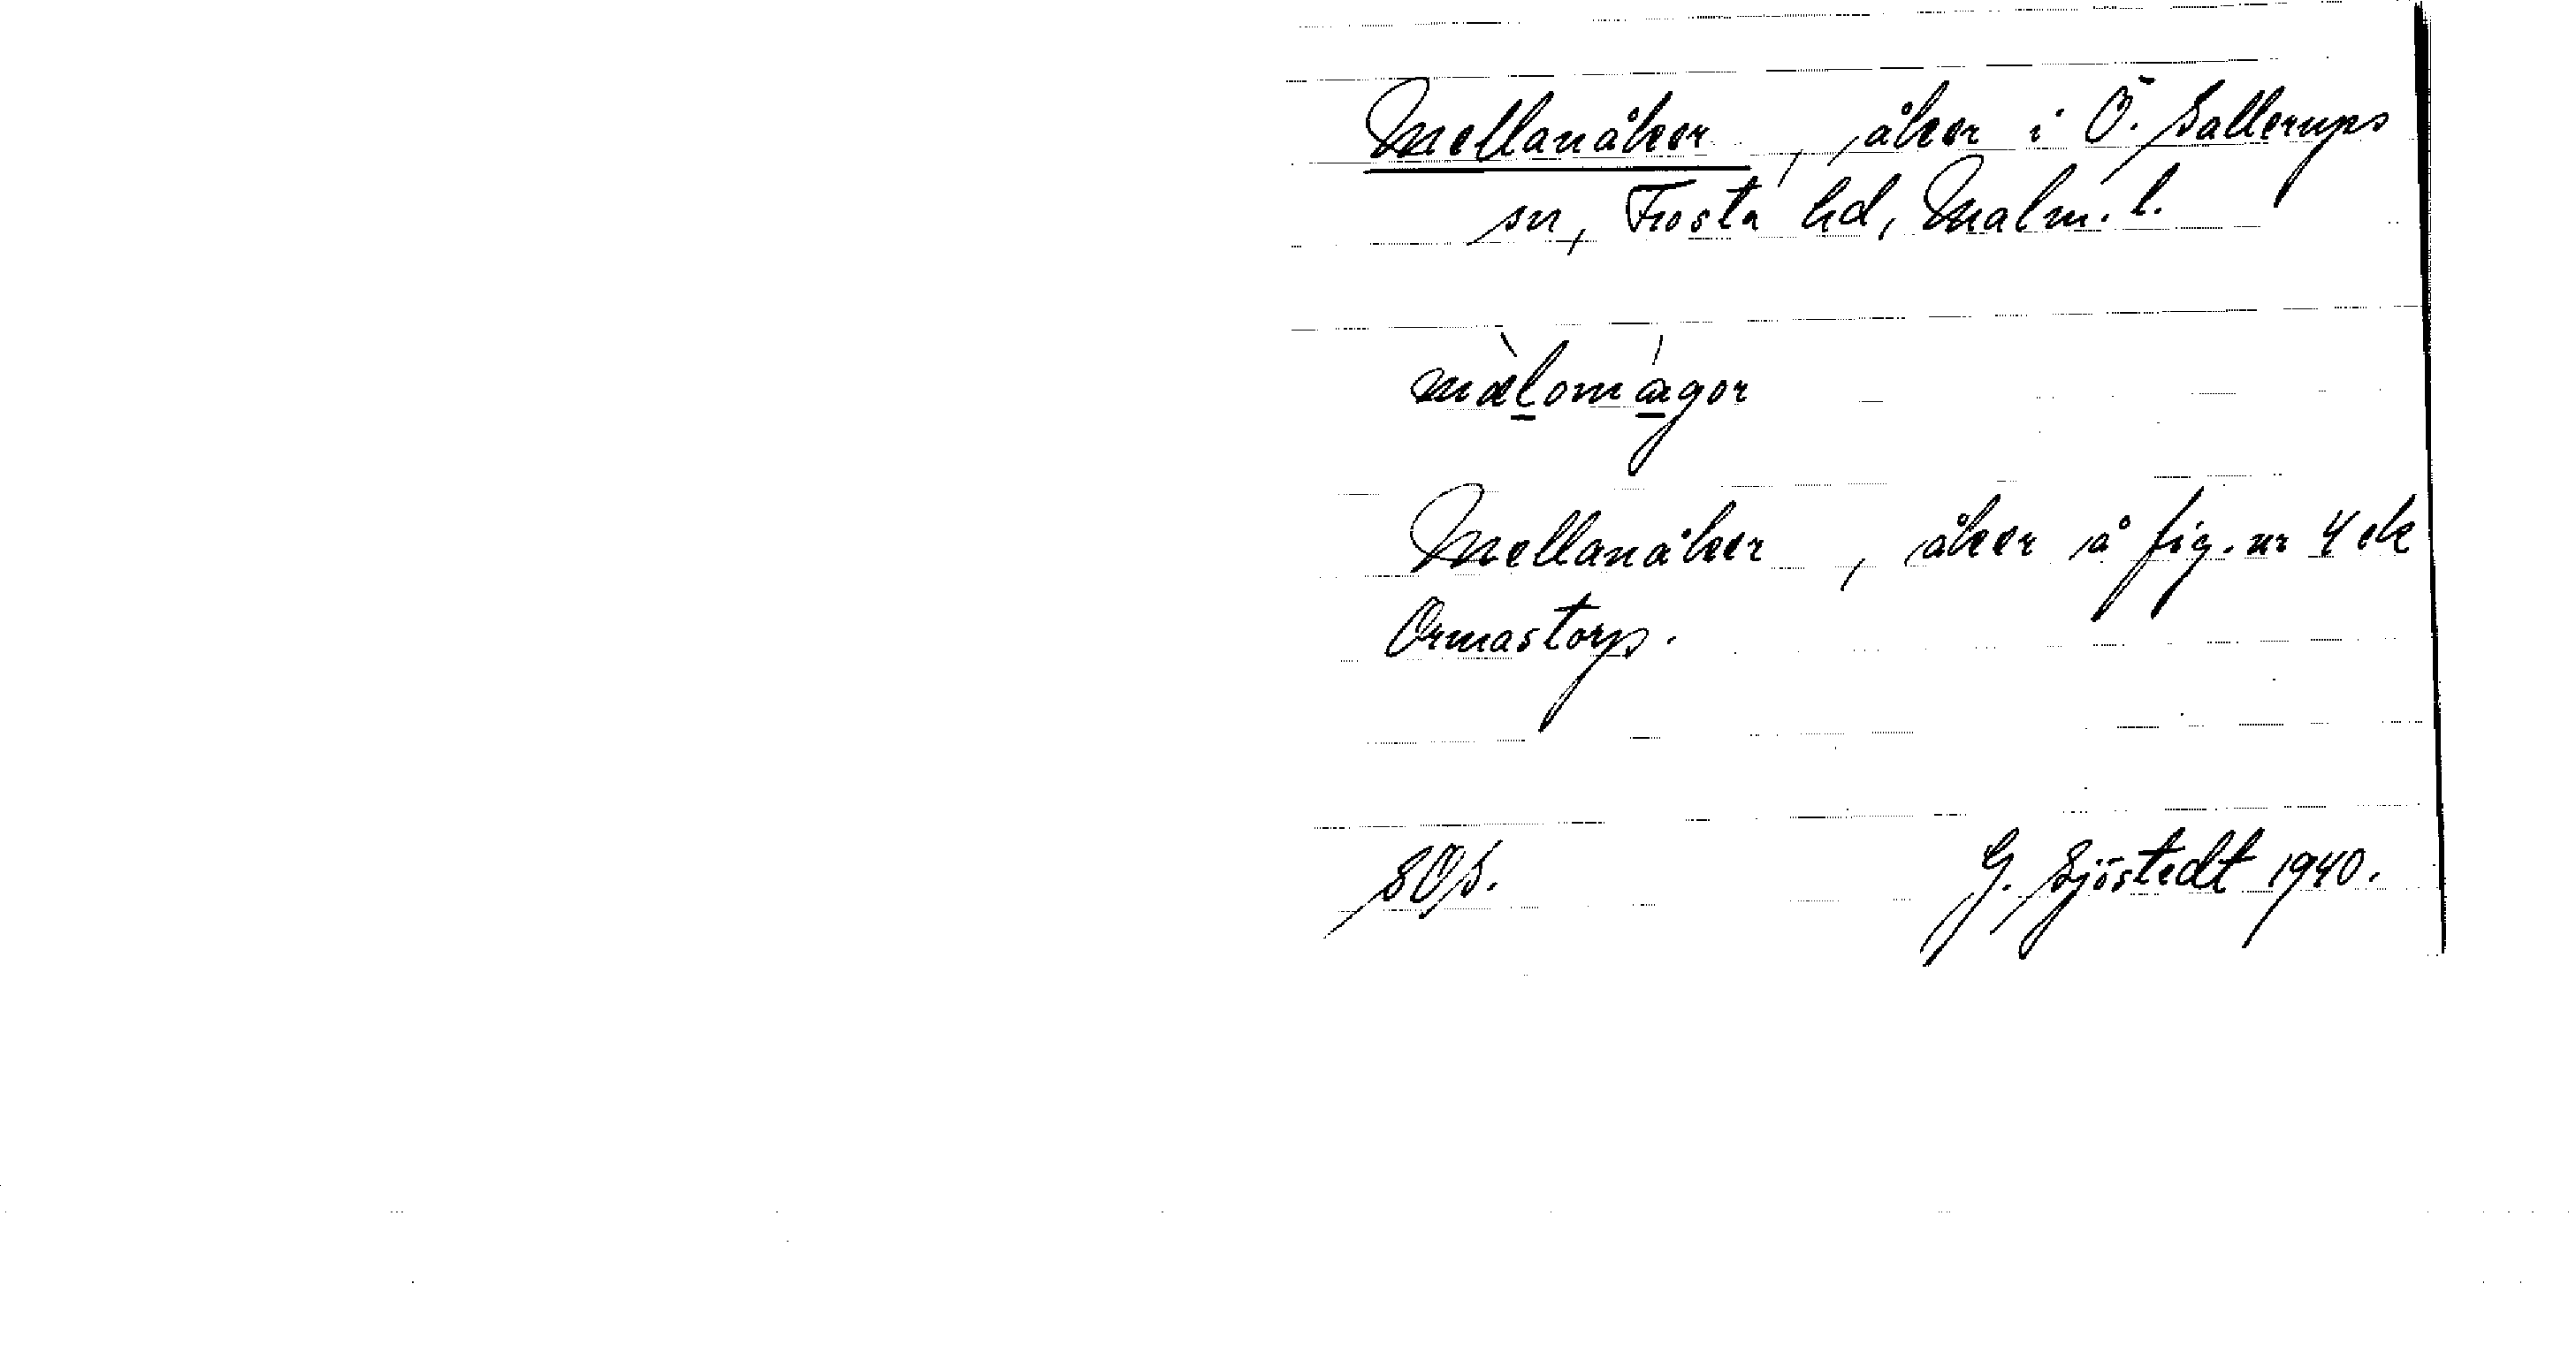 Mellanåker, åker i Ö. Sallerups
sn, Frosta hd, Malm. l.
Mellanåker, åker å fig. nr 4 ek
Ormastorp.
SOS.
G. Sjöstedt 1940.